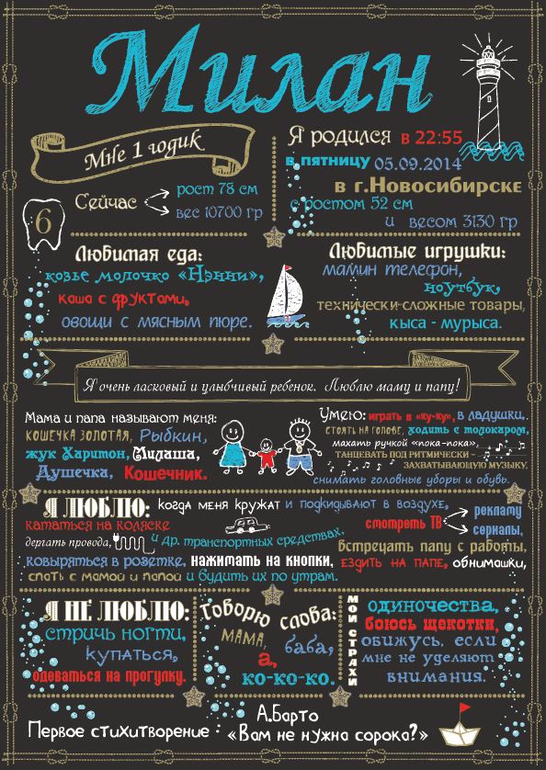 Милан
Мне 1 годик
Я родился в 22:55
в пятницу 05.09.2014
в г.Новосибирске
с ростом 52 см
и весом 3130 гр
Сейчас
рост 78 см
вес 10700 гр
6
Любимая еда:
козье молочко «Нэнни»,
каша с фруктами,
овощи с мясным пюре.
Любимые игрушки:
мамин телефон,
ноутбук,
технически-сложные товары,
кыса - мурыса.
Я очень ласковый и улыбчивый ребенок. Люблю маму и папу!
Мама и папа называют меня:
кошечка золотая, Рыбкин,
жук Харитон, Милаша,
Душечка, Кошечник.
Умею: играть в «ку-ку», в ладушки.
стоять на голове, ходить с толокаром,
махать ручкой «пока-пока»,
танцевать под ритмически -
захватывающую музыку,
снимать головные уборы и обувь.
Я ЛЮБЛЮ: когда меня кружат и подкидывают в воздухе,
кататься на коляске
и др. транспортных средствах,
смотреть ТВ
рекламу
сериалы,
дергать провода,
встречать папу с работы,
ковыряться в розетке, нажимать на кнопки, ездить на папе, обнимашки,
спать с мамой и папой и будить их по утрам.
Я НЕ ЛЮБЛЮ:
стричь ногти,
купаться,
одеваться на прогулку.
Говорю слова:
мама,
баба,
а,
ко-ко-ко.
МОИ СТРАХИ
одиночества,
боюсь щекотки,
обижусь, если
мне не уделяют
внимания.
Первое стихитворение :
А.Барто
«Вам не нужна сорока?»